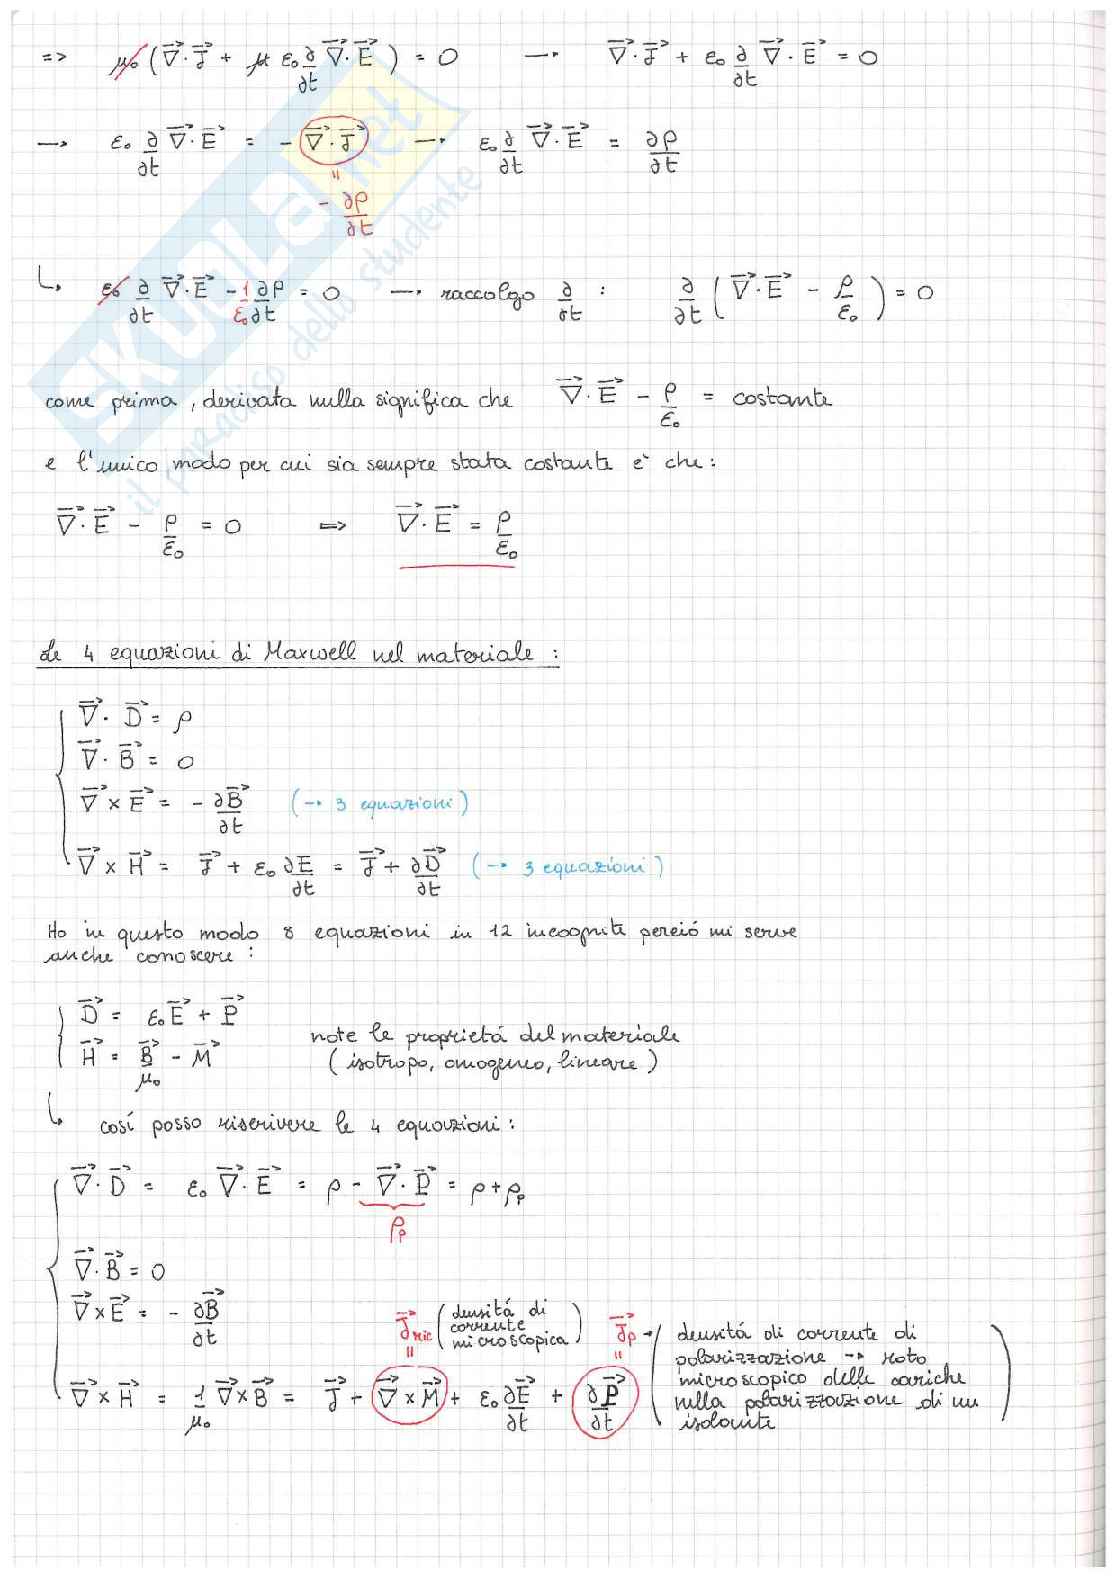 => μ₀ (∇⃗·J⃗ + μ ε₀ ∂/∂t ∇⃗·E⃗) = 0 → ∇⃗·J⃗ + ε₀ ∂/∂t ∇⃗·E⃗ = 0
→ ε₀ ∂/∂t ∇⃗·E⃗ = - ∇⃗·J⃗ → ε₀ ∂/∂t ∇⃗·E⃗ = ∂ρ/∂t
= - ∂ρ/∂t
↳ ε₀ ∂/∂t ∇⃗·E⃗ - 1/ε₀ ∂ρ/∂t = 0 → raccolgo ∂/∂t : ∂/∂t (∇⃗·E⃗ - ρ/ε₀) = 0
come prima, derivata nulla significa che ∇⃗·E⃗ - ρ/ε₀ = costante
e l'unico modo per cui sia sempre stata costante è che:
∇⃗·E⃗ - ρ/ε₀ = 0 => ∇⃗·E⃗ = ρ/ε₀
Le 4 equazioni di Maxwell nel materiale :
∇⃗·D⃗ = ρ
∇⃗·B⃗ = 0
∇⃗×E⃗ = - ∂B⃗/∂t (→ 3 equazioni)
∇⃗×H⃗ = J⃗ + ε₀ ∂E/∂t = J⃗ + ∂D⃗/∂t (→ 3 equazioni)
Ho in questo modo 8 equazioni in 12 incognite perció mi serve
anche conoscere :
D⃗ = ε₀E⃗ + P⃗
H⃗ = B⃗/μ₀ - M⃗
note le proprietá del materiale
(isotropo, omogeneo, lineare)
↳ cosí posso riscrivere le 4 equazioni :
∇⃗·D⃗ = ε₀ ∇⃗·E⃗ = ρ - ∇⃗·P⃗ = ρ + ρₚ
ρₚ
∇⃗·B⃗ = 0
∇⃗×E⃗ = - ∂B⃗/∂t
J⃗mic (densitá di
corrente
microscopica)
=
J⃗ₚ → (densitá di corrente di
polarizzazione → moto
microscopico delle cariche
nella polarizzazione di un
isolante)
=
∇⃗×H⃗ = 1/μ₀ ∇⃗×B⃗ = J⃗ + ∇⃗×M⃗ + ε₀ ∂E⃗/∂t + ∂P⃗/∂t
SKUOLA.net
il paradiso dello studente